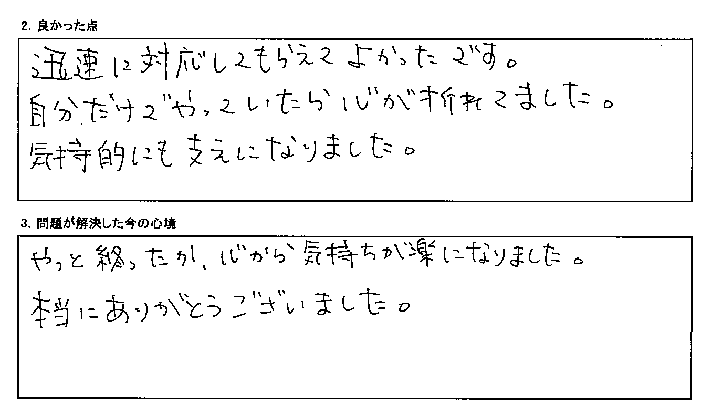 2. 良かった点
迅速に対応してもらえてよかったです。
自分だけでやっていたら心が折れてました。
気持的にも支えになりました。
3. 問題が解決した今の心境
やっと終ったか、心から気持ちが楽になりました。
本当にありがとうございました。